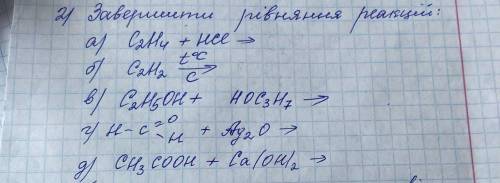 2) Завершити рівняння реакцій:
а) C₂H₄ + HCl →
б) C₂H₂ t°C→ C
в) C₂H₅OH + HOC₃H₇ →
г) H-C=O -H + Ag₂O →
д) CH₃COOH + Ca(OH)₂ →